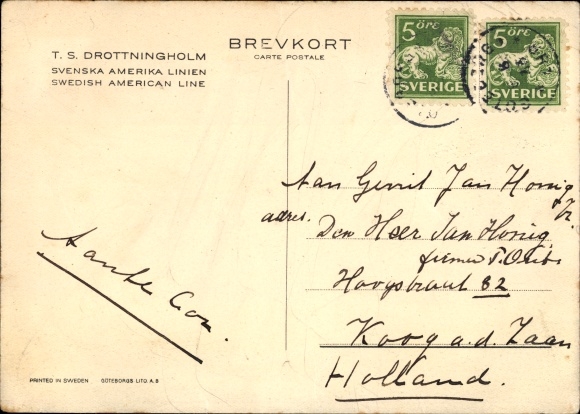 T. S. DROTTNINGHOLM
SVENSKA AMERIKA LINIEN
SWEDISH AMERICAN LINE
BREVKORT
CARTE POSTALE
5 ÖRE
SVERIGE
5 ÖRE
SVERIGE
Aan Gerrit Jan Honig
adres. Den Heer Jan Honig
firma
Hoogstraat 82
Koog a.d. Zaan
Holland.
Tante
PRINTED IN SWEDEN GÖTEBORGS LITO. A.B